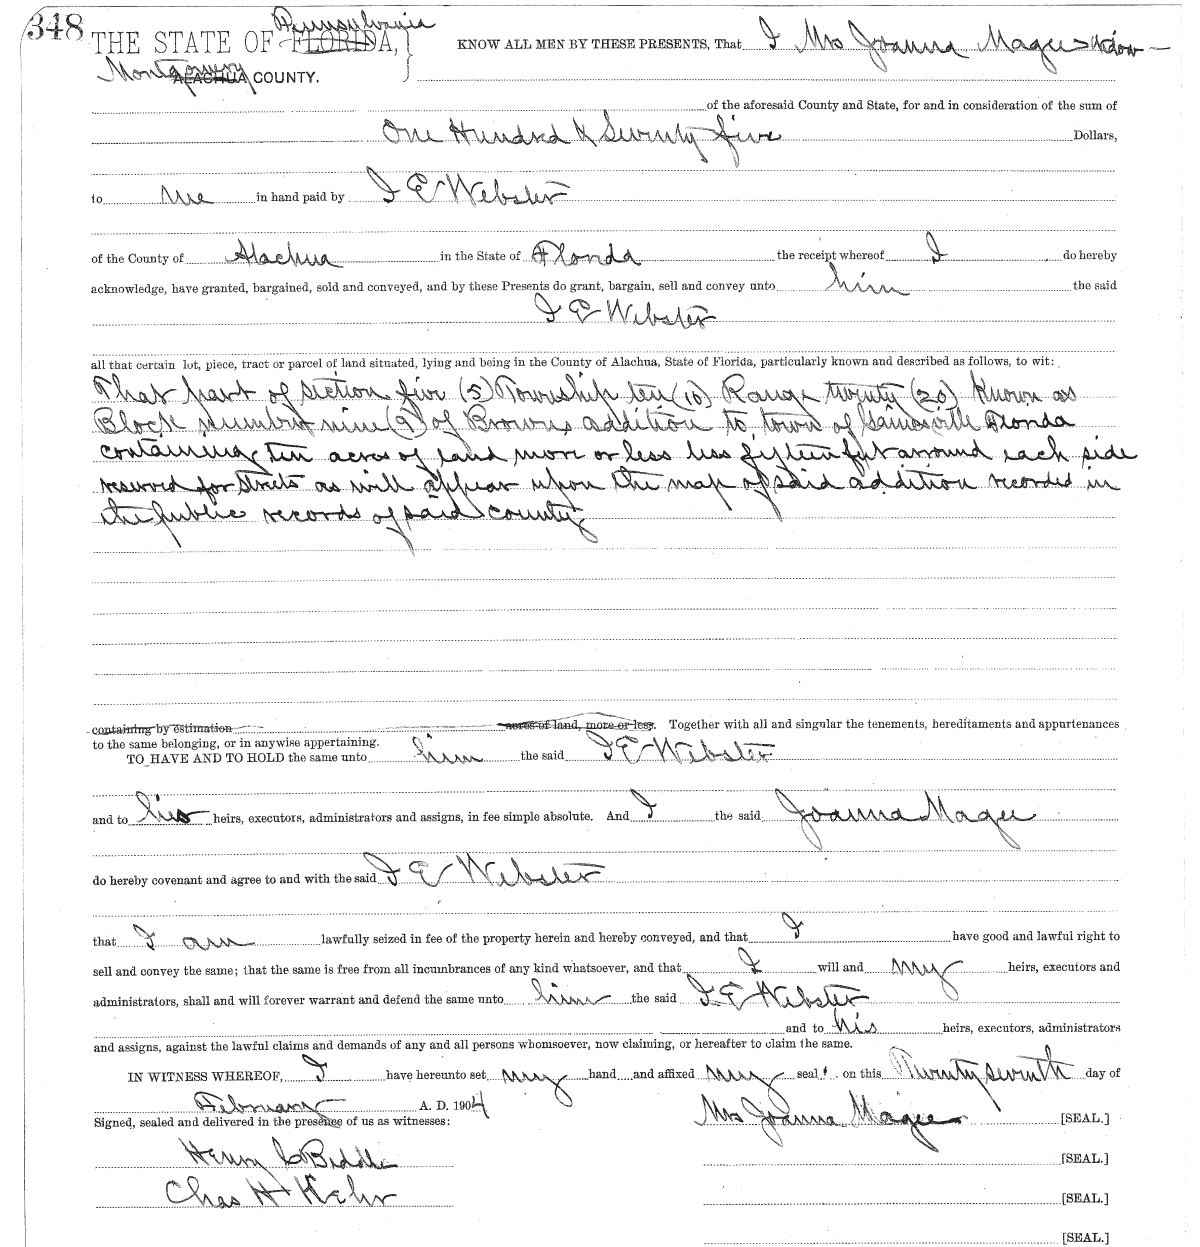 348
Pennsylvania
THE STATE OF FLORIDA, KNOW ALL MEN BY THESE PRESENTS, That I Mrs Joanna Magee widow
Montgomery
ALACHUA COUNTY.
of the aforesaid County and State, for and in consideration of the sum of
One Hundred & Seventy five Dollars,
to me in hand paid by I E Webster
of the County of Alachua in the State of Florida the receipt whereof I do hereby
acknowledge, have granted, bargained, sold and conveyed, and by these Presents do grant, bargain, sell and convey unto him the said
I E Webster
all that certain lot, piece, tract or parcel of land situated, lying and being in the County of Alachua, State of Florida, particularly known and described as follows, to wit:
That part of section five (5) Township ten (10) Range twenty (20) Known as
Block number nine (9) of Browns addition to town of Gainesville Florida
containing ten acres of land more or less less fifteen feet around each side
reserved for streets as will appear upon the map of said addition recorded in
the public records of said county
containing by estimation acres of land, more or less. Together with all and singular the tenements, hereditaments and appurtenances
to the same belonging, or in anywise appertaining.
TO HAVE AND TO HOLD the same unto him the said I E Webster
and to his heirs, executors, administrators and assigns, in fee simple absolute. And I the said Joanna Magee
do hereby covenant and agree to and with the said I E Webster
that I am lawfully seized in fee of the property herein and hereby conveyed, and that I have good and lawful right to
sell and convey the same; that the same is free from all incumbrances of any kind whatsoever, and that I will and my heirs, executors and
administrators, shall and will forever warrant and defend the same unto him the said I E Webster
and to his heirs, executors, administrators
and assigns, against the lawful claims and demands of any and all persons whomsoever, now claiming, or hereafter to claim the same.
IN WITNESS WHEREOF, I have hereunto set my hand and affixed my seal on this Twenty seventh day of
February A. D. 1904
Signed, sealed and delivered in the presence of us as witnesses: Mrs Joanna Magee [SEAL.]
Henry C Biddle [SEAL.]
Chas H Kehr [SEAL.]
[SEAL.]